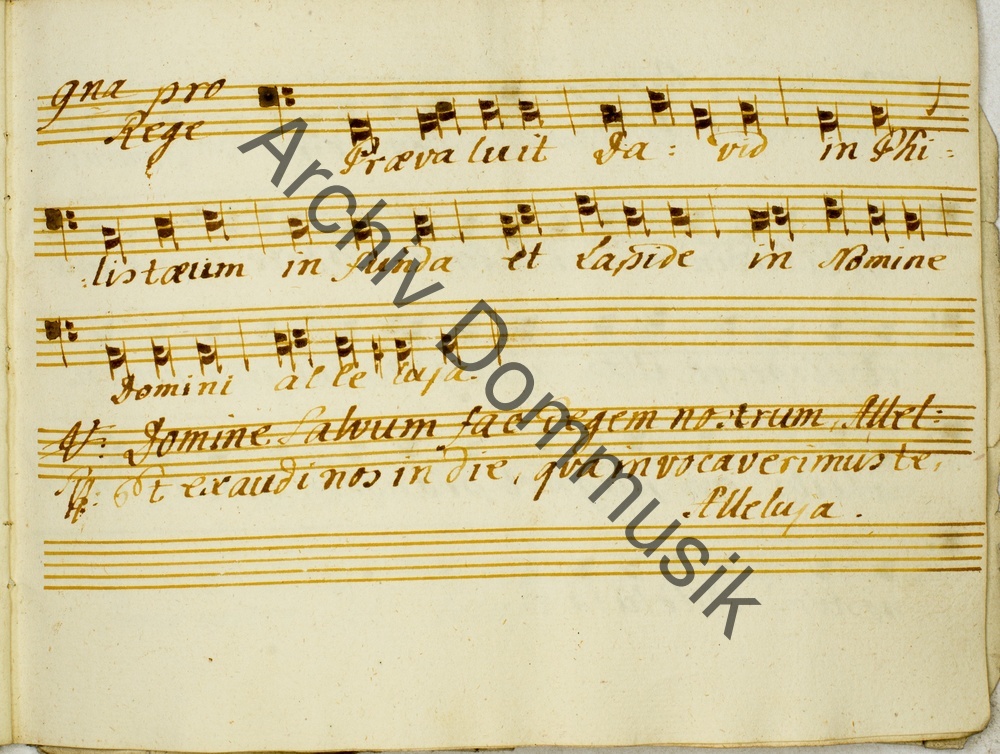 gna pro
Rege
Prævaluit Da: vid in Phi:
:listæum in funda et Lapide in Nomine
Domini alleluja.
V: Domine salvum fac Regem nostrum, Allel:
R: Et exaudi nos in die, qua invocaverimus te,
Alleluja.
Archiv Dommusik